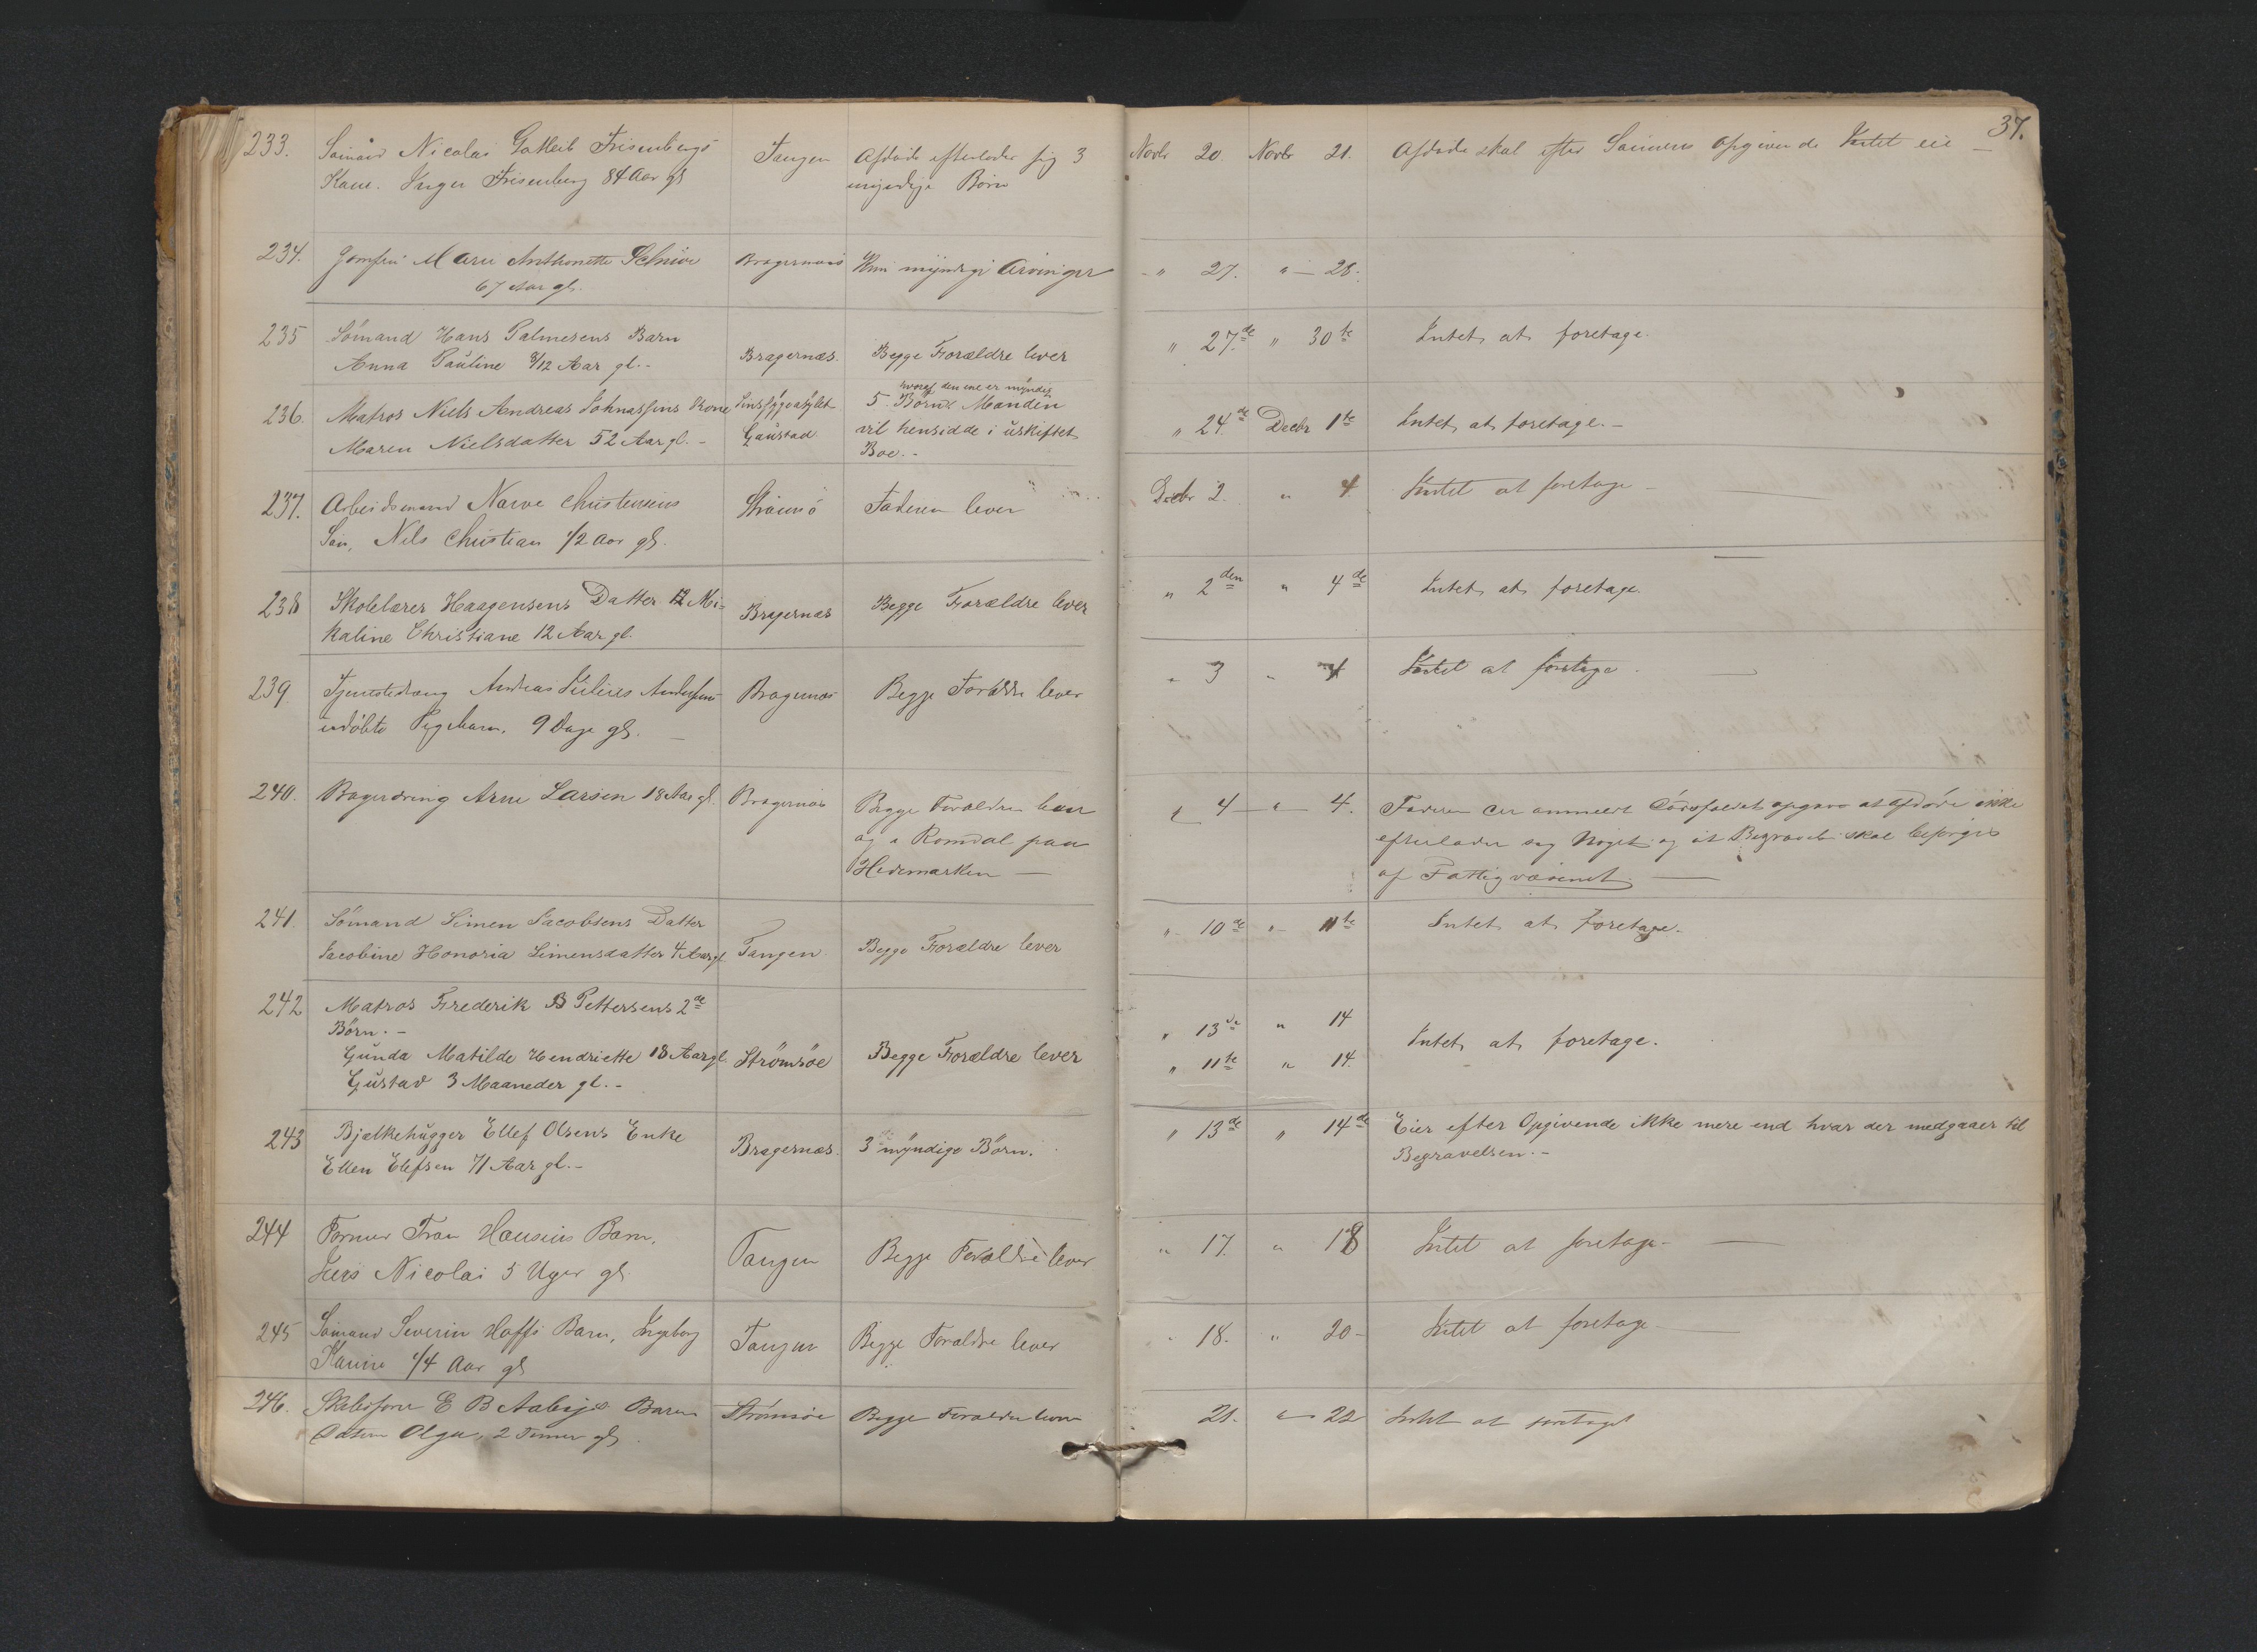 37.
233. Sømand Nicolai Gotlieb Frisenbergs Tangen Afdøde efterlader sig 3 Novbr 20. Novbr 21. Afdøde skal efter Sønnens Opgivende Intet eie —
Kone. Inger Frisenberg 84 Aar gl myndige Børn
234. Jomfru Maren Anthonette Bragernæs Kun myndige Arvinger " 27. " — 28.
67 Aar gl.
235 Sømand Hans Palmesens Barn Bragernæs. Begge Forældre lever " 27.de " 30te Intet at foretage.
Anna Pauline 8/12 Aar gl. -
236. Matros Niels Andreas Johnassens Kone Sinssygeasylet 5 Børn hvoraf den ene er myndig Manden " 24.de Decbr 1te Intet at foretage. -
Maren Nielsdatter 52 Aar gl. - Gaustad vil hensidde i uskiftet
Boe. -
237. Arbeidsmand Narve Christensens Strømsö Faderen lever Decbr 2. " 4 Intet at foretage —
Søn, Nils Christian 1/2 Aar gl.
238 Skolelærer Haagensens Datter Mi= Bragernæs Begge Forældre lever " 2den " 4de Intet at foretage.
kaline Christiane 12 Aar gl.
239. Tjenestedreng Andreas Julius Andersens Bragernæs Begge Forældre lever " 3 " 4 Intet at foretage.
udöbte Pigebarn. 9 Dage gl. —
240. Bagerdreng Arne Larsen 18 Aar gl. Bragernæs Begge Forældre lever " 4 — " — 4. Faderen der anmeldt Dödsfaldet opgav at afdöde ikke
og i Romdal paa efterlader sig Noget og at Begravelse skal besørges
Hedemarken — af Fattigvæsenet. —
241. Sömand Simen Jacobsens Datter Tangen. Begge Forældre lever " 10de " 11te Intet at foretage.
Jacobine Honoria Simensdatter 4 Aar gl
242 Matros Frederik B Pettersens 2de
Börn. - " 13de " 14
Gunda Matilde Hendriette 18 Aar gl. Strömsöe Begge Forældre lever " 11te " 14. Intet at foretage.
Gustav 3 Maaneder gl. -
243 Bjælkehugger Ellef Olsens Enke Bragernæs. 3 myndige Börn. " 13de " 14de Eier efter Opgivende ikke mere end hvad der medgaaer til
Ellen Elefsen 71 Aar gl. - Begravelsen. -
244 Former Fran Hansens Barn, Tangen Begge Forældre lever " 17. " 18 Intet at foretage —
Jens Nicolai 5 Uger gl.
245 Sømand Severin Hoffs Barn, Ingeborg Tangen Begge Forældre lever " 18. " 20 - Intet at foretage —
1/4 Aar gl
246. Skibsfører E B Aabys Barn Strømsöe Begge Forældre lever 21. " — 22 Intet at foretage
Olga, 2 Timer gl.